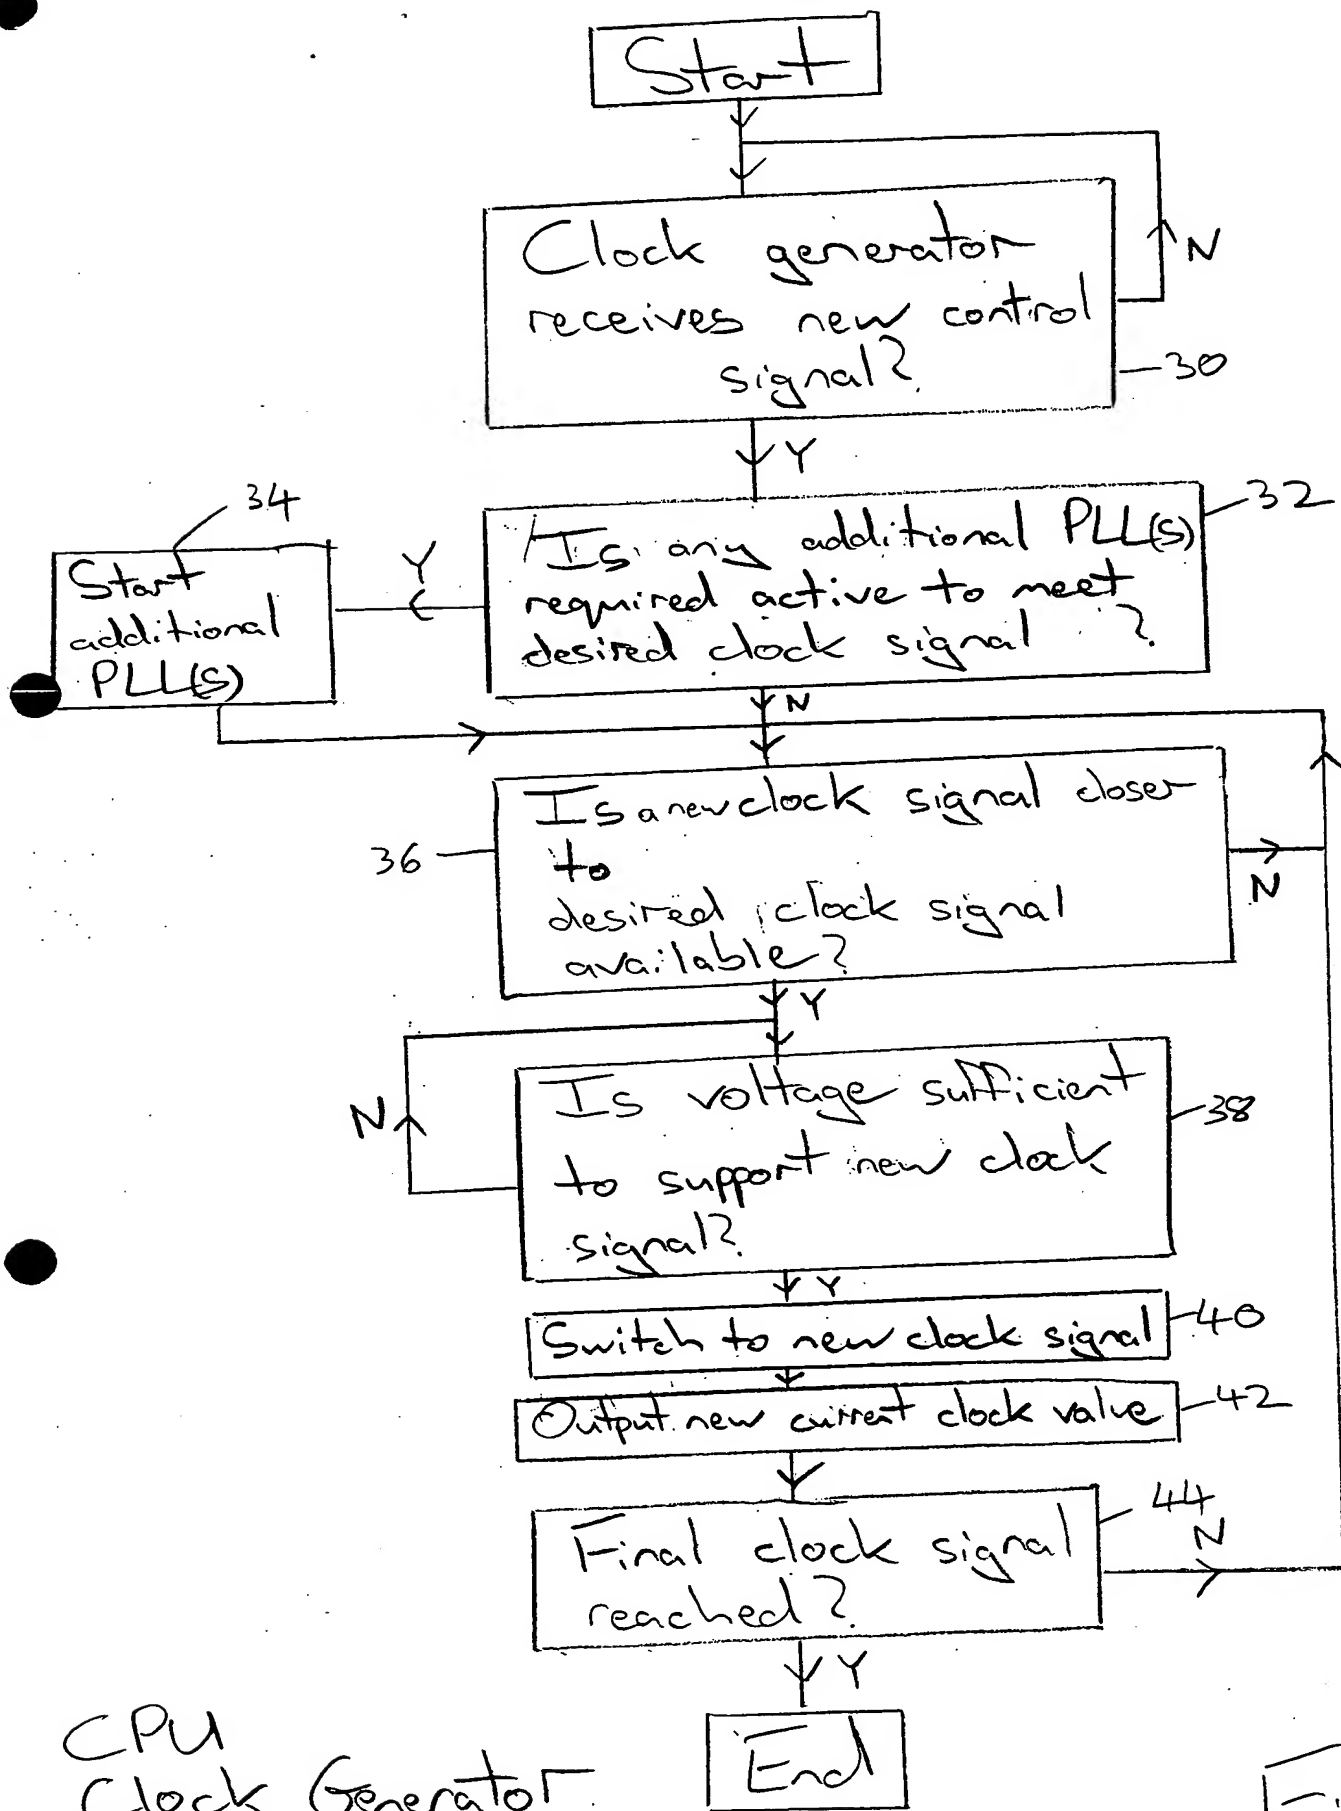 Start
Clock generator
receives new control
signal?
N
30
Y
34
Start
additional
PLL(s)
Y
Is any additional PLL(s)
required active to meet
desired clock signal ?
32
N
36
Is a new clock signal closer
to
desired clock signal
available?
N
Y
N
Is voltage sufficient
to support new clock
signal?
38
Y
Switch to new clock signal
40
Output new current clock value
42
Final clock signal
reached?
44
N
Y
End
CPU
Clock Generator